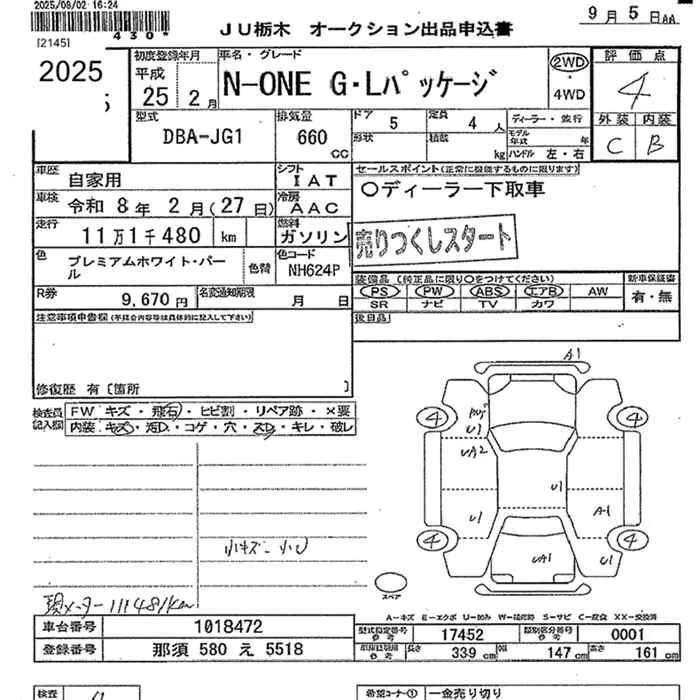 2025/08/02 16:24
430*
[2145]
JU栃木 オークション出品申込書
9月5日AA
2025
初度登録年月
平成
25 2月
車名・グレード
N-ONE G・Lパッケージ
2WD
・
4WD
評価点
4
外装 内装
C B
型式
DBA-JG1
排気量
660
CC
ドア 5
形状
定員 4 人
積載 kg
ディーラー・並行
モデル年式 年
ハンドル 左・右
車歴
自家用
シフト
IAT
セールスポイント(正常に機能するものに限ります)
○ディーラー下取車
車検 令和 8年 2月(27日)
冷房
AAC
走行
11万1千480 km
燃料
ガソリン
売りつくしスタート
色
プレミアムホワイト・パール
色替
色コード
NH624P
装備品(純正品に限り○をつけてください)
新車保証書
PS PW ABS エアB AW
SR ナビ TV カワ
有・無
R券
9,670円
名変通知期限
月 日
注意事項申告欄(不具合内容等は具体的に記入して下さい)
後日品
修復歴 有〔箇所 〕
検査員記入欄
FW キズ・飛石・ヒビ割・リペア跡・×要
内装・キズ・汚D・コゲ・穴・スレ・キレ・破レ
A1
4 4
U1
UA2
U1
U1
A-1
4 4
UA1
U1
小キズ 小U
現メーター111481km
スペア
A-キズ E-エクボ U-凹み W-補修跡 S-サビ C-腐食 XX-交換済
車台番号
1018472
型式指定番号
参考
17452
類別区分番号
参考
0001
登録番号
那須 580 え 5518
参考
長さ 339 cm
幅 147 cm
高さ 161 cm
検査
希望コーナー① 一金売り切り